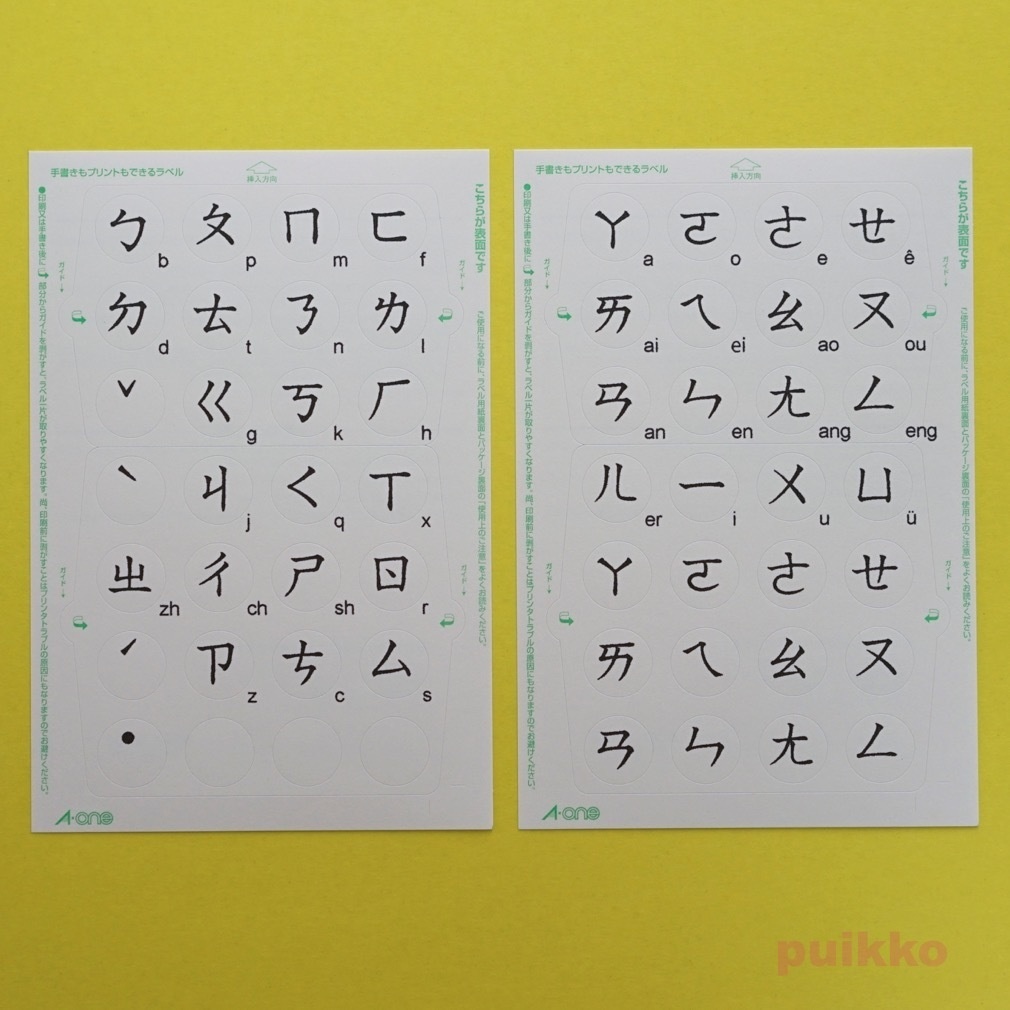 手書きもプリントもできるラベル
挿入方向
こちらが表面です
ご使用になる前に、ラベル用紙裏面とパッケージ裏面の「使用上のご注意」をよくお読みください。
●印刷又は手書き後に
部分からガイドを剥がすと、ラベル一片が取りやすくなります。尚、印刷前に剥がすことはプリンタトラブルの原因にもなりますのでお避けください。
ガイド→
ガイド→
ガイド→
ガイド→
ㄅ b ㄆ p ㄇ m ㄈ f
ㄉ d ㄊ t ㄋ n ㄌ l
ˇ ㄍ g ㄎ k ㄏ h
ˋ ㄐ j ㄑ q ㄒ x
ㄓ zh ㄔ ch ㄕ sh ㄖ r
ˊ ㄗ z ㄘ c ㄙ s
•
A·one
手書きもプリントもできるラベル
挿入方向
こちらが表面です
ご使用になる前に、ラベル用紙裏面とパッケージ裏面の「使用上のご注意」をよくお読みください。
●印刷又は手書き後に
部分からガイドを剥がすと、ラベル一片が取りやすくなります。尚、印刷前に剥がすことはプリンタトラブルの原因にもなりますのでお避けください。
ガイド→
ガイド→
ガイド→
ガイド→
ㄚ a ㄛ o ㄜ e ㄝ ê
ㄞ ai ㄟ ei ㄠ ao ㄡ ou
ㄢ an ㄣ en ㄤ ang ㄥ eng
ㄦ er ㄧ i ㄨ u ㄩ ü
ㄚ ㄛ ㄜ ㄝ
ㄞ ㄟ ㄠ ㄡ
ㄢ ㄣ ㄤ ㄥ
A·one
puikko